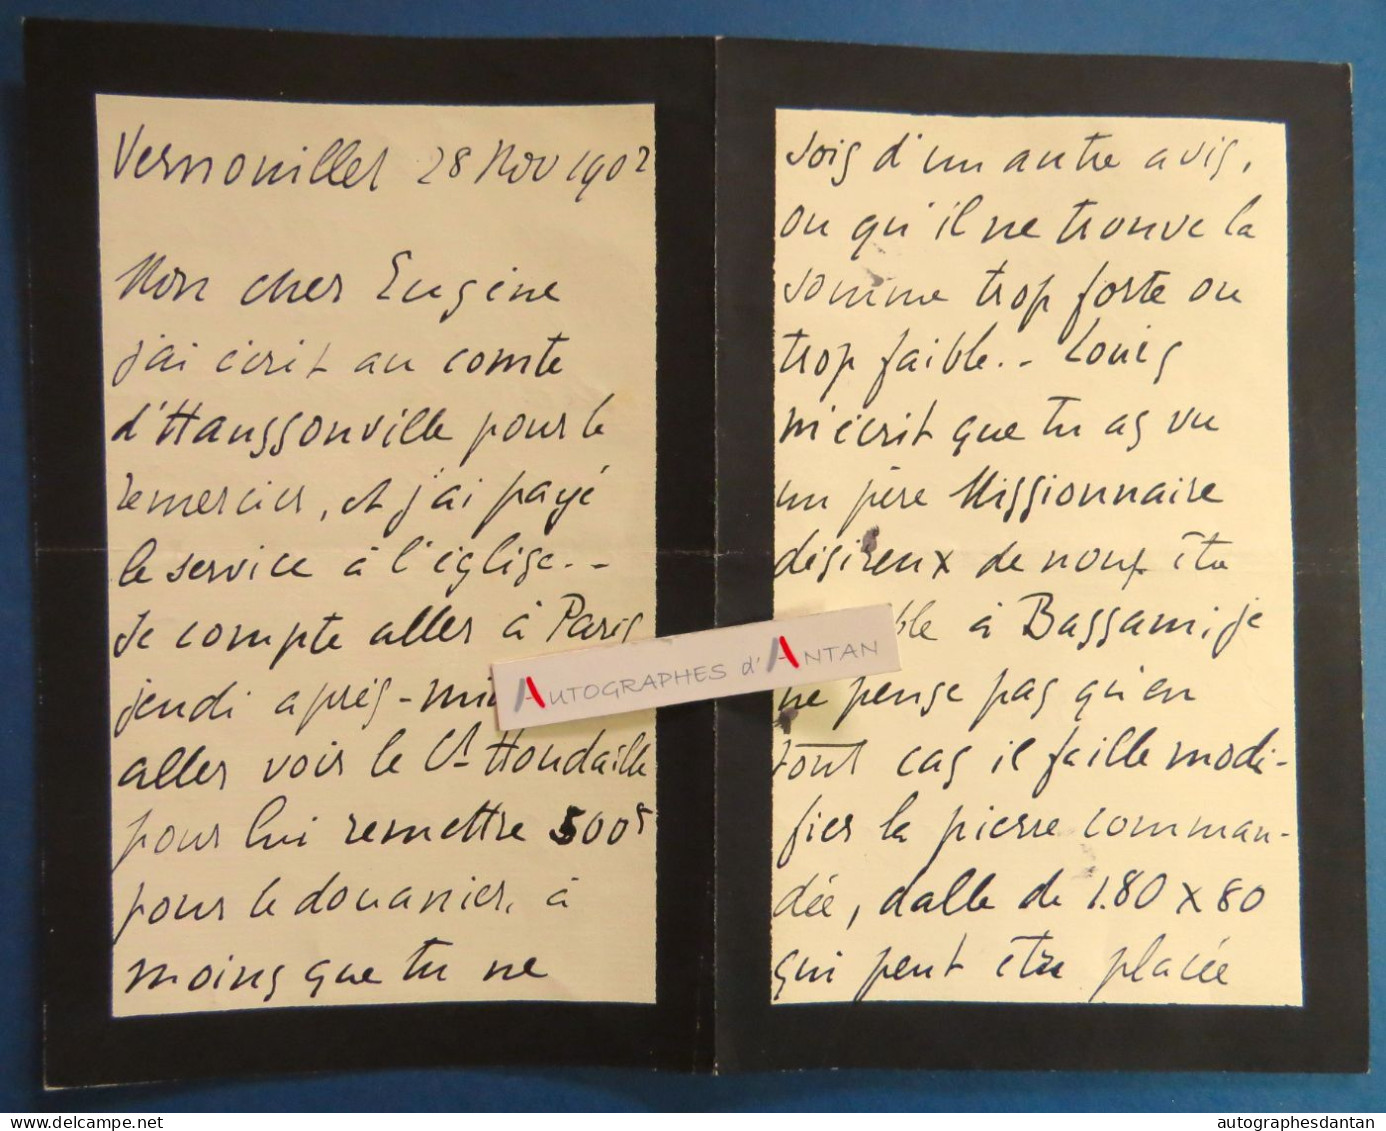 Vernouillet 28 Nov 1902
Mon cher Eugène
j'ai écrit au comte
d'Haussonville pour le
remercier, et j'ai payé
le service à l'église. -
Je compte aller à Paris
jeudi après-mi
aller voir le Ct Houdaille
pour lui remettre 500f
pour le douanier, à
moins que tu ne
sois d'un autre avis,
ou qu'il ne trouve la
somme trop forte ou
trop faible. - Louis
m'écrit que tu as vu
un père Missionnaire
désireux de nous être
ble à Bassam; je
ne pense pas qu'en
tout cas il faille modi-
fier la pierre comman-
dée, dalle de 1.80 x 80
qui peut être placée
AUTOGRAPHES d'ANTAN
autographesdantan